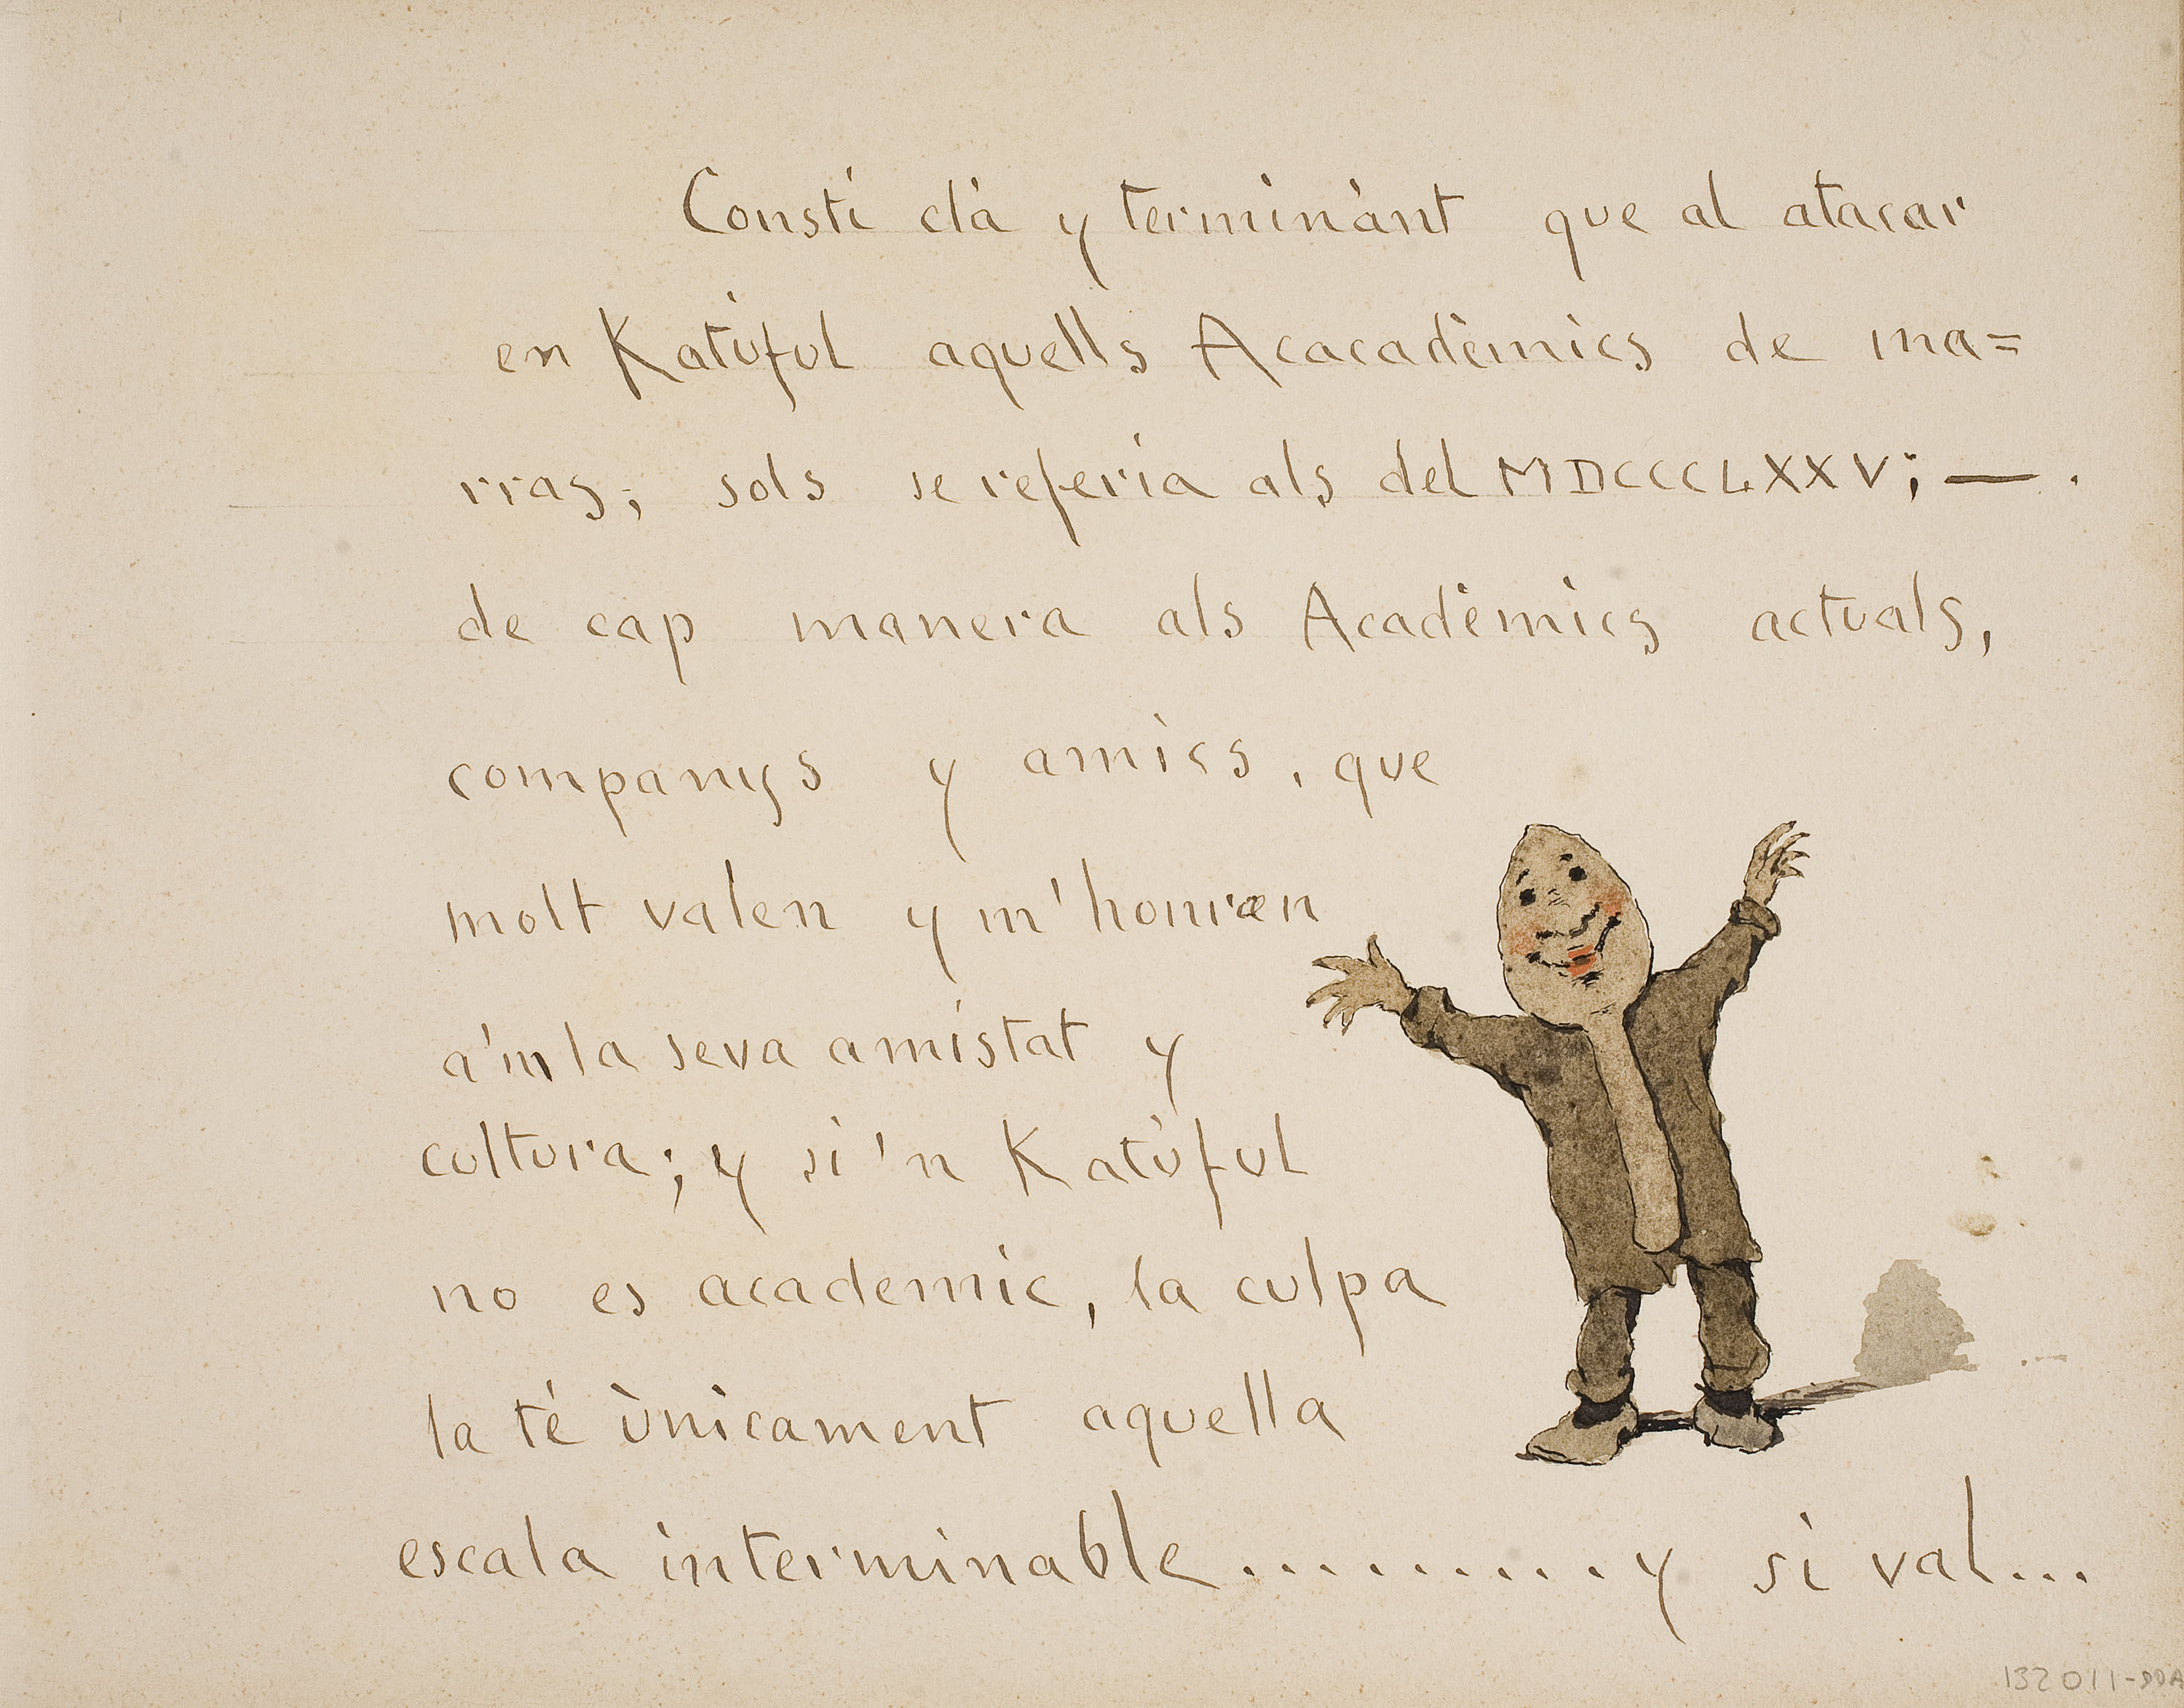 Consti clà y terminànt que al atacar
en Katúful aquells Acacadèmics de ma=
rras; sols se referia als del MDCCCLXXV; — .
de cap manera als Acadèmics actuals,
companys y amics, que
molt valen y m'honran
a'm la seva amistat y
cultura; y si'n Katúful
no es academic, la culpa
la té ùnicament aquella
escala interminable.......... y si val...